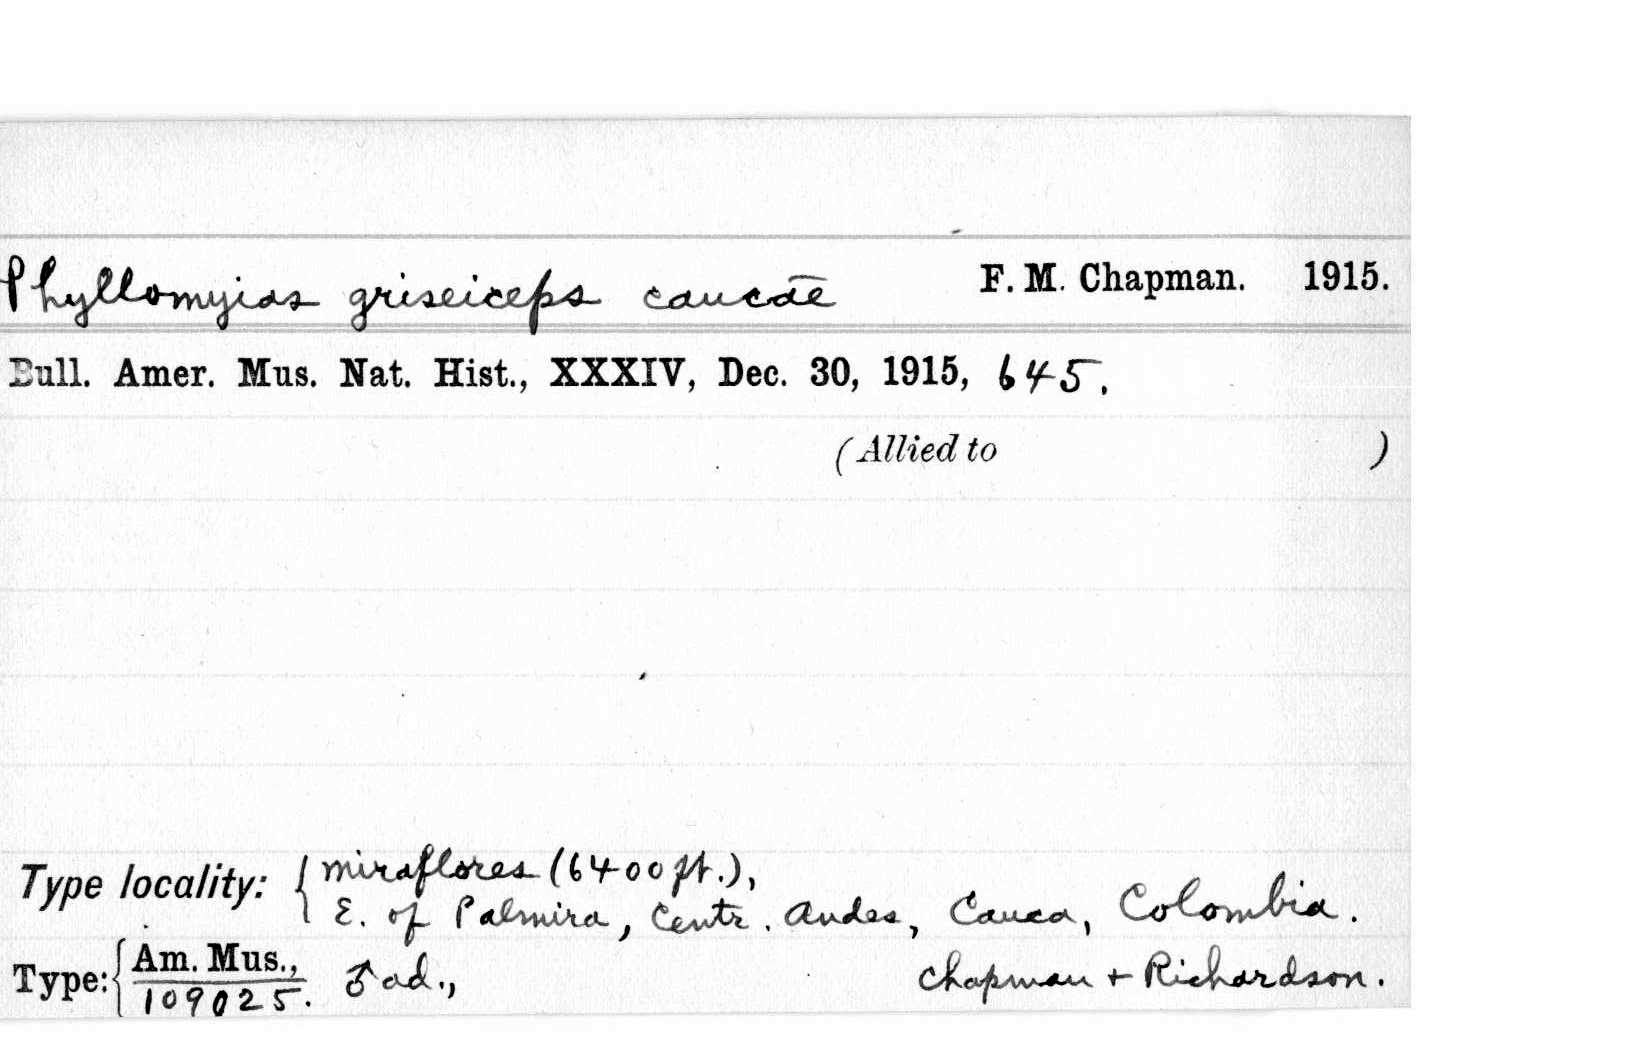 Phyllomyias griseiceps caucae F. M. Chapman. 1915.
Bull. Amer. Mus. Nat. Hist., XXXIV, Dec. 30, 1915, 645.
(Allied to )
Type locality: { Miraflores (6400 ft.),
E. of Palmira, Centr. Andes, Cauca, Colombia.
Type: { Am. Mus., ♂ ad., Chapman + Richardson.
109025.